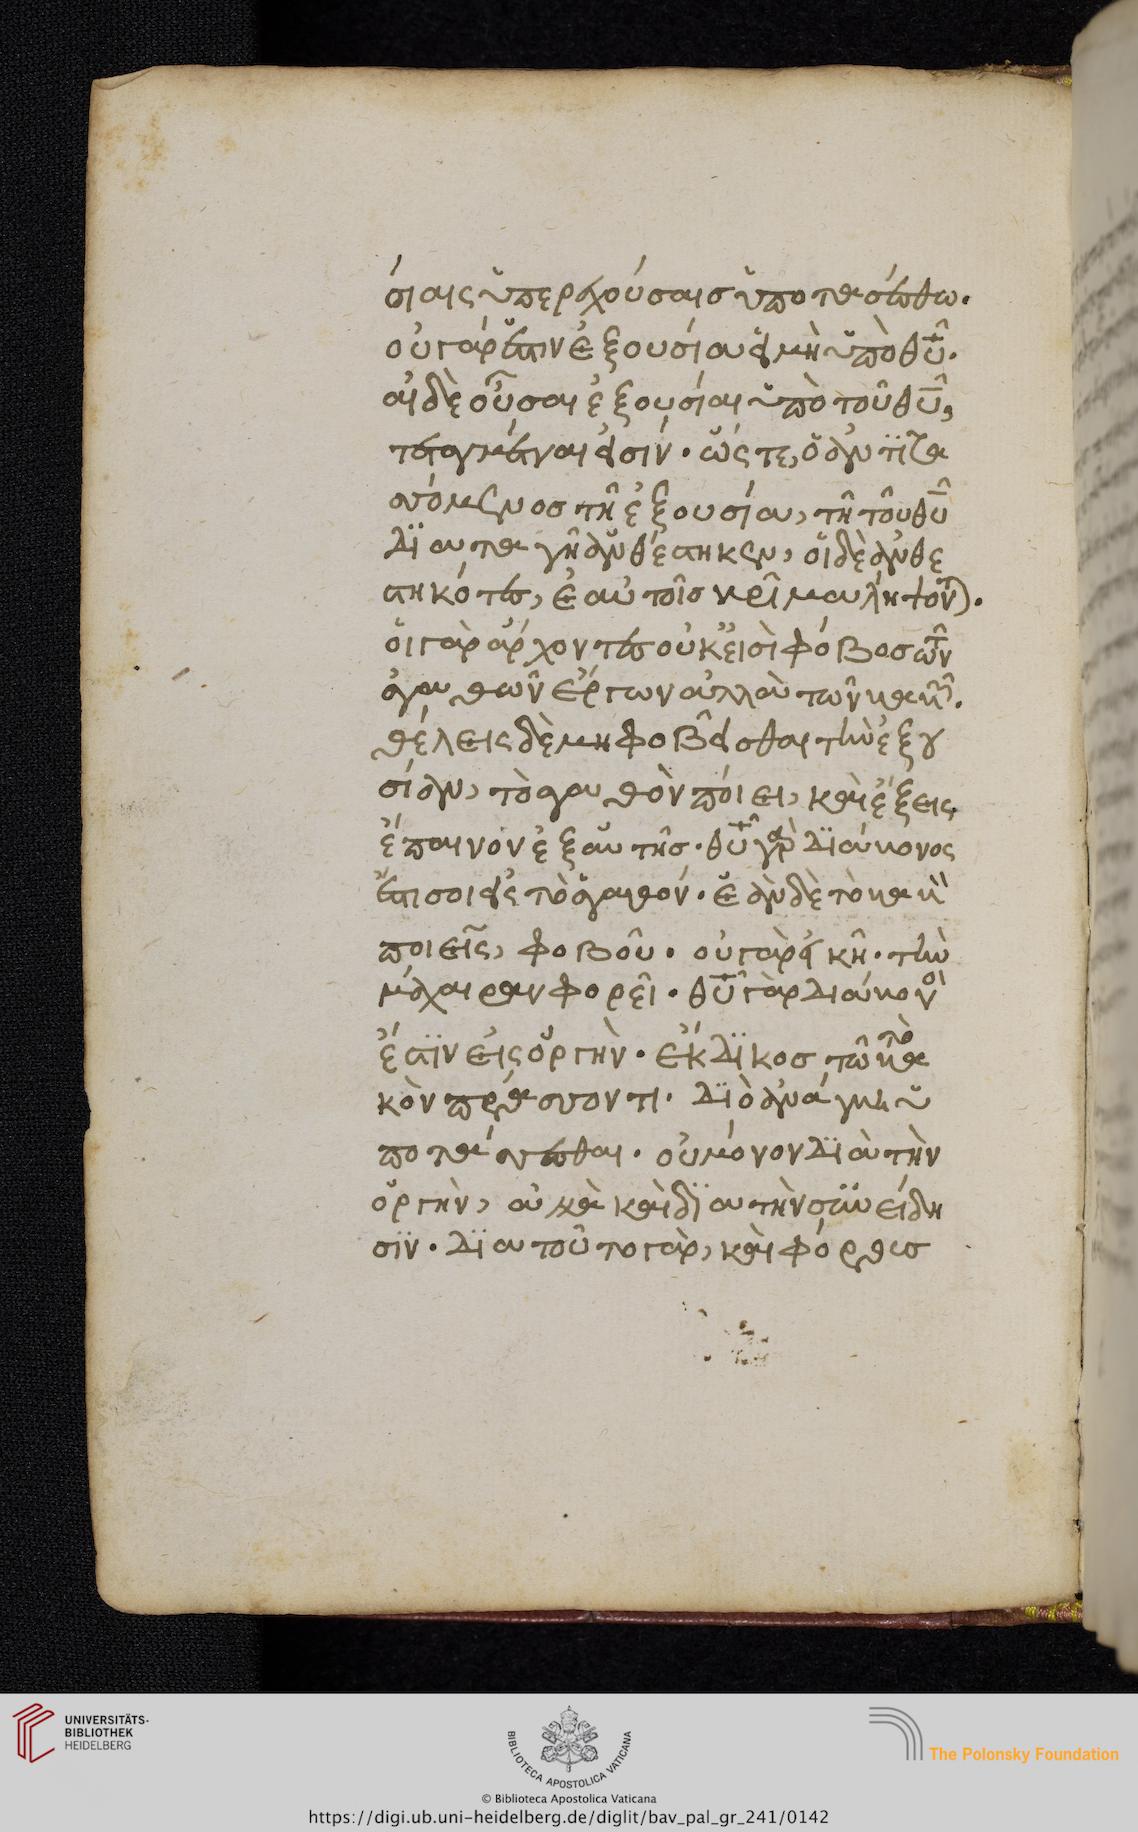 σίαις ὑπερεχούσαις ὑποτασέσθω.
οὐ γάρ ἐστιν ἐξουσία εἰ μὴ ὑπὸ θῡ.
αἱ δὲ οὖσαι ἐξουσίαι ὑπὸ τοῦ θῡ,
τεταγμέναι εἰσίν. ὥς τε, ὁ ἀντϊτα
σόμενος τῆ ἐξουσία, τῆ τοῦ θῡ
δϊαταγῆ ἀνθέστηκεν, οἱ δὲ ἀνθε
στηκότες, ἐαυτοῖς κρῖμα λήψον).
οἱ γὰρ ἄρχοντες οὐκ εἰσὶ φόβος τῶν
ἀγαθῶν ἔργων ἀλλὰ τῶν κακῶν.
θέλεις δὲ μὴ φοβεῖσθαι τὴν ἐξου
σίαν, τὸ ἀγαθὸν ποίει, καὶ ἕξεις
ἔπαινον ἐξ αὐτῆς. θῡ γὰρ δϊάκονος
ἐστι σοι εἰς τὸ ἀγαθόν. ἐὰν δὲ τὸ κακὸν
ποιεῖς, φοβοῦ. οὐ γὰρ εἰκῆ. τὴν
μάχαιραν φορεῖ. θῡ γὰρ δϊάκονός
ἐστϊν εἰς ὀργὴν. ἔκδϊκος τῶ τὸ κα
κὸν πράσσοντι. δϊὸ ἀνάγκη ὑ
ποτάσσεσθαι. οὐ μόνον δϊὰ τὴν
ὀργὴν, ἀλλὰ καὶ δϊα τὴν συνείδη
σϊν. δϊα τοῦτο γὰρ, καὶ φόρους
UNIVERSITÄTS-
BIBLIOTHEK
HEIDELBERG
BIBLIOTECA APOSTOLICA VATICANA
The Polonsky Foundation
© Biblioteca Apostolica Vaticana
https://digi.ub.uni-heidelberg.de/diglit/bav_pal_gr_241/0142